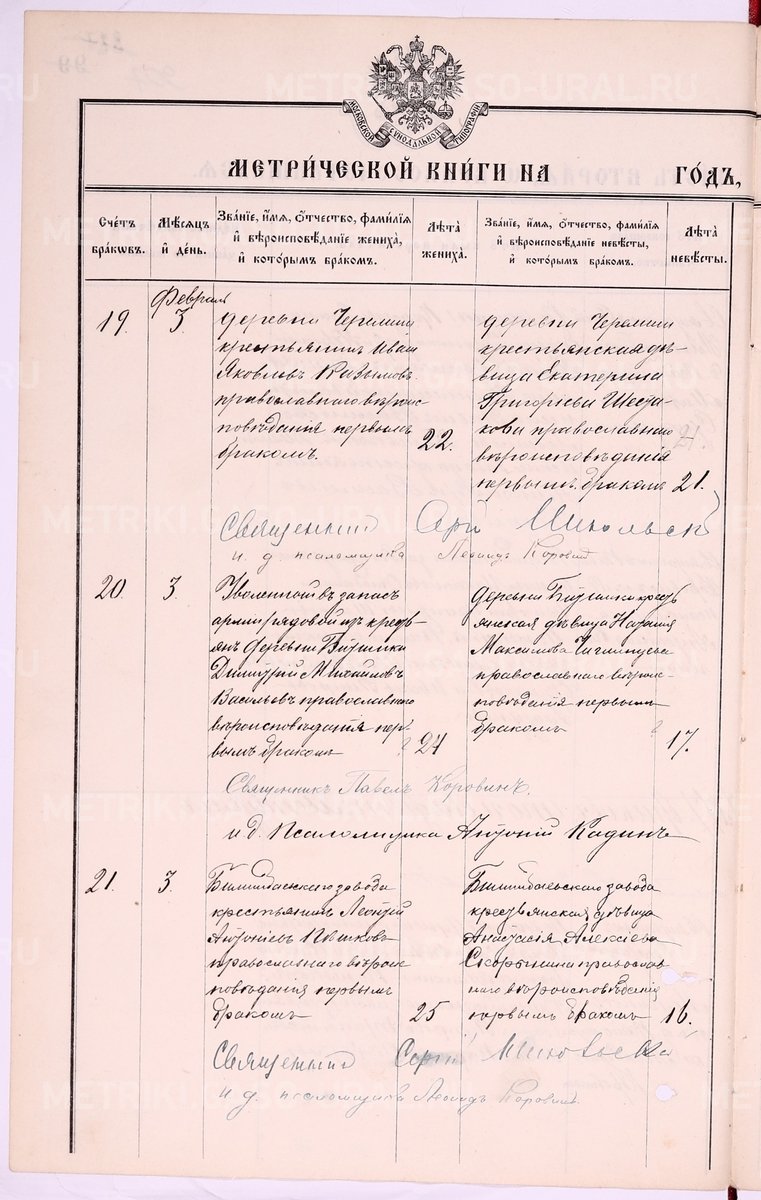 МОСКОВСКОЙ СѴНОДАЛЬНОЙ ТИПОГРАФІИ
МЕТРИ́ЧЕСКОЙ КНИ́ГИ НА ГО́ДЪ,
Сче́тъ бра́кѡвъ.
Мѣ́сяцъ и҆ де́нь.
Зва́нїе, и҆́мя, ѻ҆́тчество, фами́лїя и҆ вѣроисповѣ́данїе жениха̀, и҆ кото́рымъ бра́комъ.
Лѣ́та жениха̀.
Зва́нїе, и҆́мя, ѻ҆́тчество, фами́лїя и҆ вѣроисповѣ́данїе невѣ́сты, и҆ кото́рымъ бра́комъ.
Лѣ́та невѣ́сты.
Февраля
19. 3.
деревни Черемши
крестьянинъ Иван
Яковлевъ Казымовъ
православнаго вѣроис
повѣданія первымъ
бракомъ.
22.
деревни Черемши
крестьянская дѣ-
вица Екатерина
Григорьева Шеста-
кова православнаго
вѣроисповѣданія
первымъ бракомъ
21.
Священникъ Сергій
и. д. псаломщика Леонидъ Коровинъ
20. 3.
Уволенной въ запасъ
арміи рядовой изъ кресть
янъ деревни
Димитрій Михаиловъ
Васильевъ православнаго
вѣроисповѣданія пер-
вымъ бракомъ
24
деревни кресть
янская дѣвица Наталія
Максимова
православнаго вѣроис-
повѣданія первымъ
бракомъ
17.
Священникъ Павелъ Коровинъ.
и д. Псаломщика Антоній Кадинъ
21. 3.
Билимбаевскаго завода
крестьянинъ Леонтій
Антоніевъ
православнаго вѣроис
повѣданія первымъ
бракомъ
25
Билимбаевскаго завода
крестьянская дѣвица
Анастасія Алексіева
Скорынина православ
наго вѣроисповѣданія
первымъ бракомъ
16.
Священникъ Сергій
и. д. псаломщика Леонидъ Коровинъ.
METRIKI.UIRO-URAL.RU